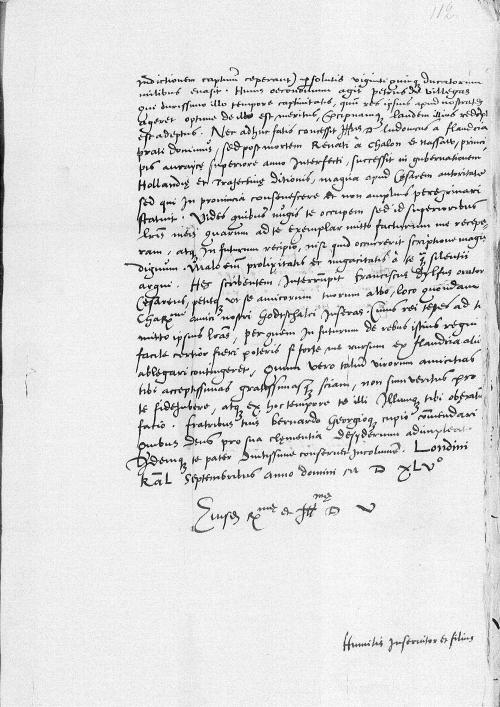 112
indictionem captum ceperant) persolutis viginti quinq ducatorum
milibus evasit. Huius oeconomum agit Petrus de Villegas
qui durissimo illo tempore captivitatis, quum res ipsius apud nostrates
ageret optime de illo est meritus, Praecipuamq laudem illius
est adeptus. Nec adhuc fatis concessit Ill D Ludovicus a Flandria
prati dominus, sed post mortem Renati a Chalon et Nassau, princi
pis auraice superiore anno interfecti, successit in gubernationem
Hollandie et Traiectine ditionis, magna apud Cesarem autoritate
sed qui in provincia consenescere et non amplius peregrinari
statuit. Vides quibus nugis te occupem sed id superioribus
lris meis quarum ad te exemplar mitto facturum me recepe-
ram, atq in futurum recipio, nisi quid occurrerit scriptione magis
dignum. Malo enim prolixitatis et nugacitatis a te q silentii
argui. Hec scribentem, interrumpit Franciscus Dylfus orator
Cesareus, petitq ut se amicorum tuorum albo, loco quondam
Chariss amici nostri Godtschalci inseras. Cuius rei spes ad te
mitto ipsius lras, per quem in futurum de rebus istius regni
facile certior fieri poteris si forte me rursum ex Flandria alio
ablegari contingeret, Quum vero talium virorum amicitias
tibi acceptissimas gratissimasq sciam, non sum veritus pro
te fideiubere, atq ex hoc tempore te illi Illumq tibi obstri
fatio. fratribus tuis bernardo Georgioq cupio commendari
quibus Deus pro sua clementia desyderium adimpleat
Idemq te pater diutissime conservet incolumem. Londini
Kal Septembribus anno domini M D XLV°
Eiusdem R me et Ill me D V
Humilis inservitor et filius